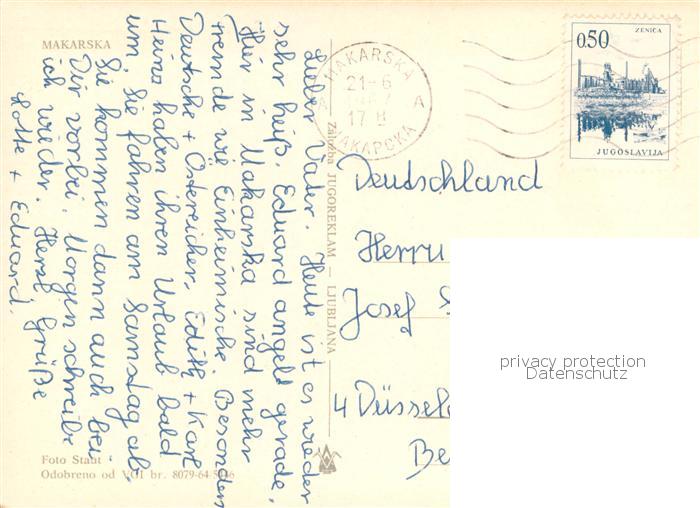 MAKARSKA
Lieber Vater. Heute ist es wieder
sehr heiß. Eduard angelt gerade,
Hier in Makarska sind mehr
Fremde wie Einheimische. Besonders
Deutsche + Östereicher. Edith + Karl
Heinz haben ihren Urlaub bald
um, Sie fahren am Samstag ab,
Sie kommen dann auch bei
Dir vorbei. Morgen schreibe
ich wieder. Herzl. Grüße
Lotte + Eduard.
Foto Staut
Odobreno od VGI br. 8079-64/
Založba JUGOREKLAM — LJUBLJANA
MAKARSKA
21-6
17
A
МАКАРСКА
ZENICA
0.50
JUGOSLAVIJA
Deutschland
Herrn
Josef
4 Düssel
Be
privacy protection
Datenschutz